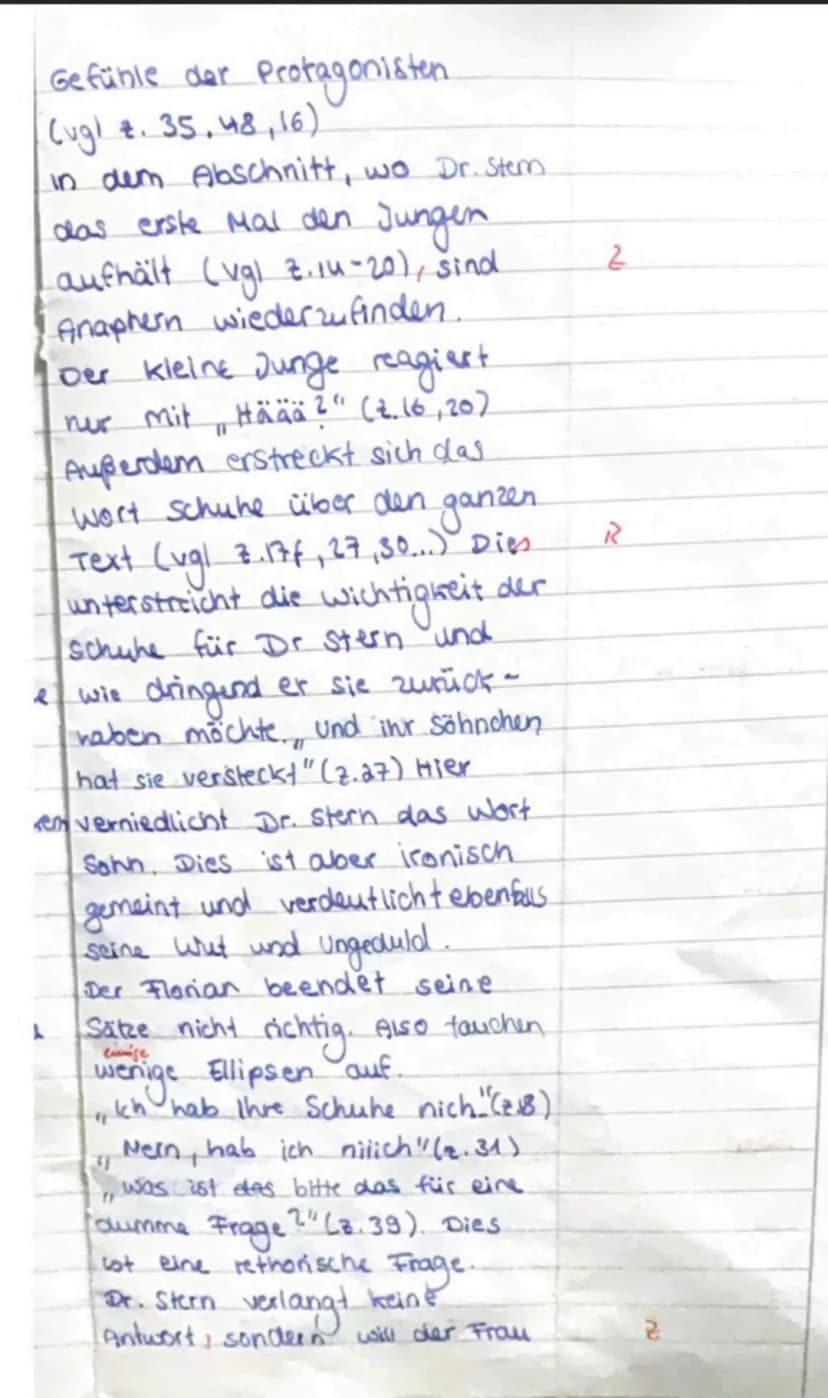 Gefühle der Protagonisten
(vgl z. 35, 48, 16)
in dem Abschnitt, wo Dr. Stern
das erste Mal den Jungen
aufhält (vgl z. 14-20), sind Z
Anaphern wiederzufinden.
Der kleine Junge reagiert
nur mit „Häää?" (z. 16, 20)
Außerdem erstreckt sich das
Wort schuhe über den ganzen
Text (vgl z. 17f, 27, 30...) Dies R
unterstreicht die wichtigkeit der
schuhe für Dr Stern und
e wie dringend er sie zurück-
haben möchte. „und ihr Söhnchen
hat sie versteckt" (z. 27) Hier
verniedlicht Dr. Stern das Wort
Sohn. Dies ist aber ironisch
gemeint und verdeutlicht ebenfalls
seine Wut und Ungeduld.
Der Florian beendet seine
Sätze nicht richtig. Also tauchen
einige
wenige Ellipsen auf.
„Ich hab Ihre Schuhe nich" (z. 18)
„Nein, hab ich niiich" (z. 31)
„was ist des bitte das für eine
dumme Frage?" (z. 39). Dies
ist eine rethorische Frage.
Dr. Stern verlangt keine
Antwort, sondern will der Frau Z